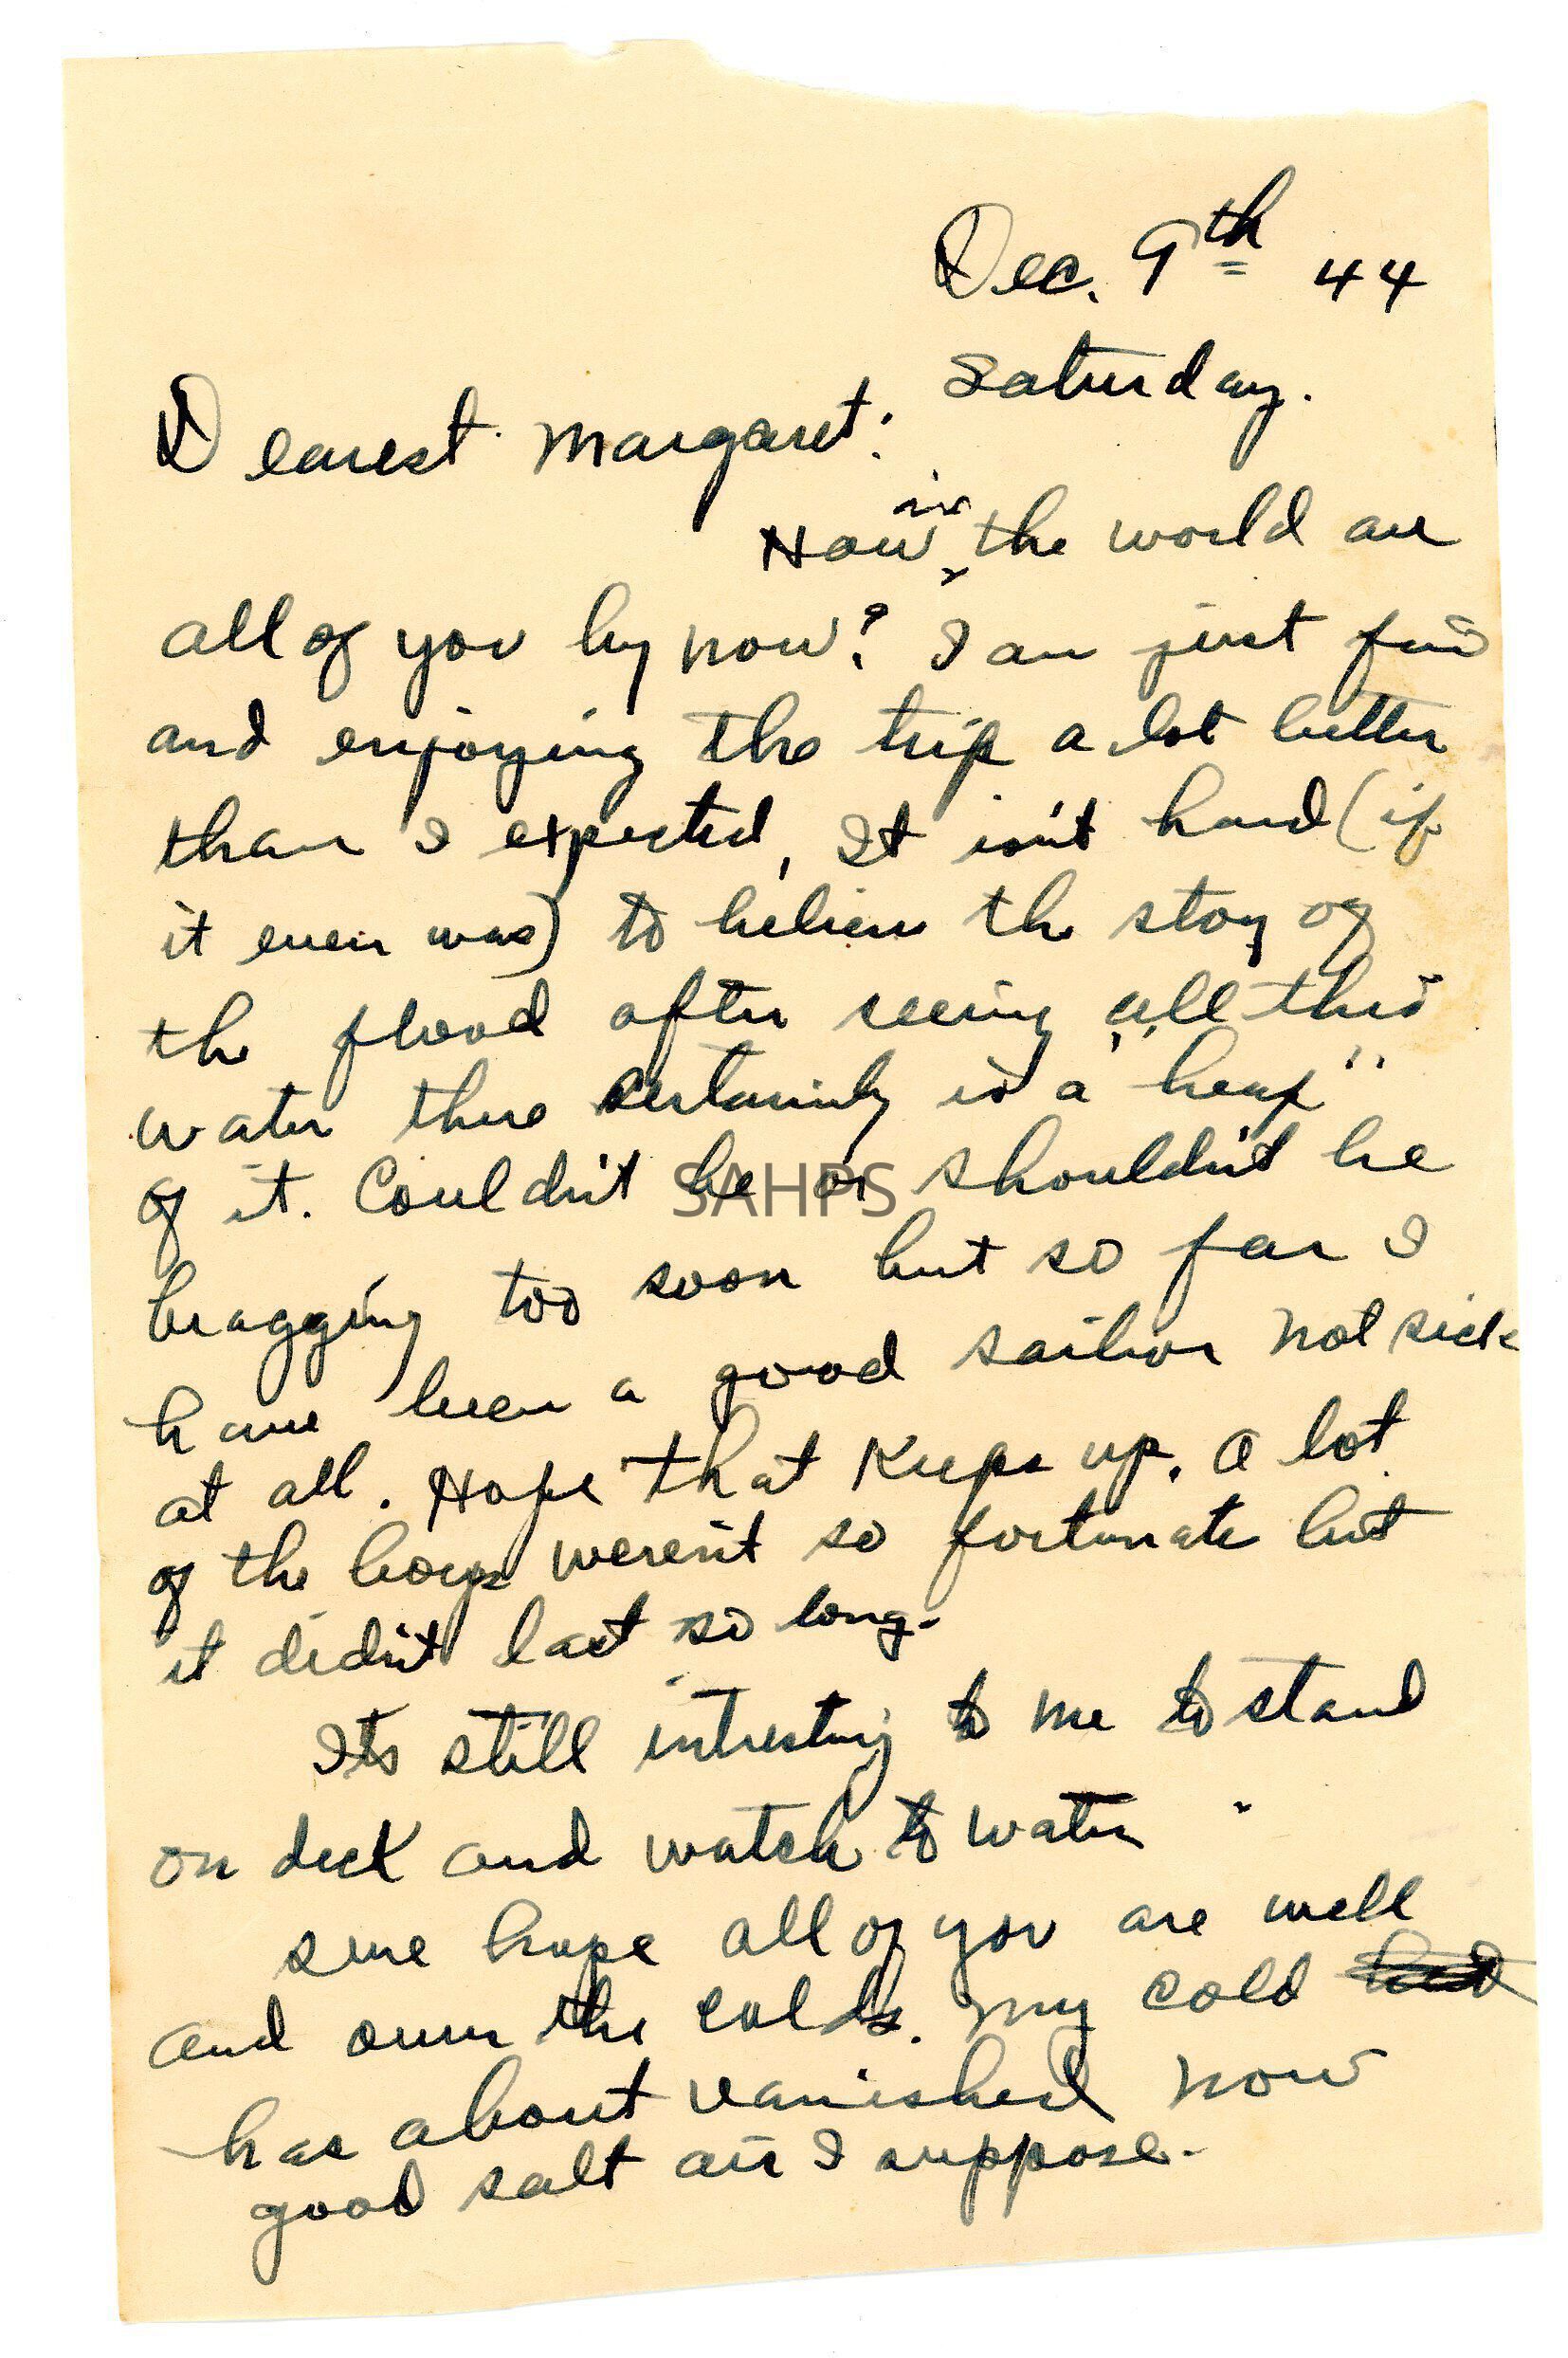 Dec. 9th 44
Saturday.
Dearest Margaret:
How in the world are
all of you by now? I am just fine
and enjoying the trip a lot better
than I expected, It isn't hard (if
it ever was) to believe the stoy of
the flood after seeing all this
water there certainly is a "heap"
of it. Couldn't be or shouldn't be
bragging too soon but so far I
have been a good sailor not sick
at all. Hope that keeps up. A lot
of the boys weren't so fortunate but
it didn't last so long.
Its still intresting to me to stand
on deck and watch to water
sure hope all of you are well
and over the colds. My cold
has about vanished now
good salt air I suppose.
SAHPS